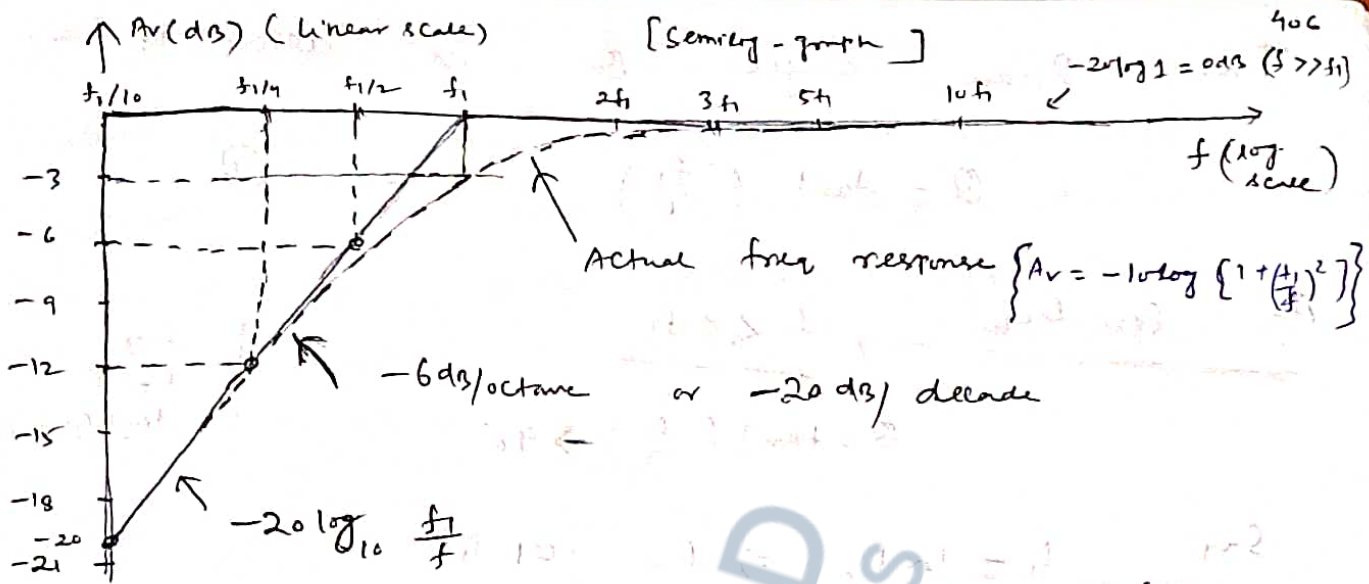 406
Av(dB) (linear scale) [Semilog-graph]
-20log 1 = 0dB (f >> f1)
f1/10 f1/4 f1/2 f1 2f1 3f1 5f1 10f1
f (log scale)
-3
-6
Actual freq response {Av = -10log {1 + (f1/f)²]}
-9
-12
-6dB/octave or -20 dB/ decade
-15
-18
-20 log10 f1/f
-20
-21
D
S